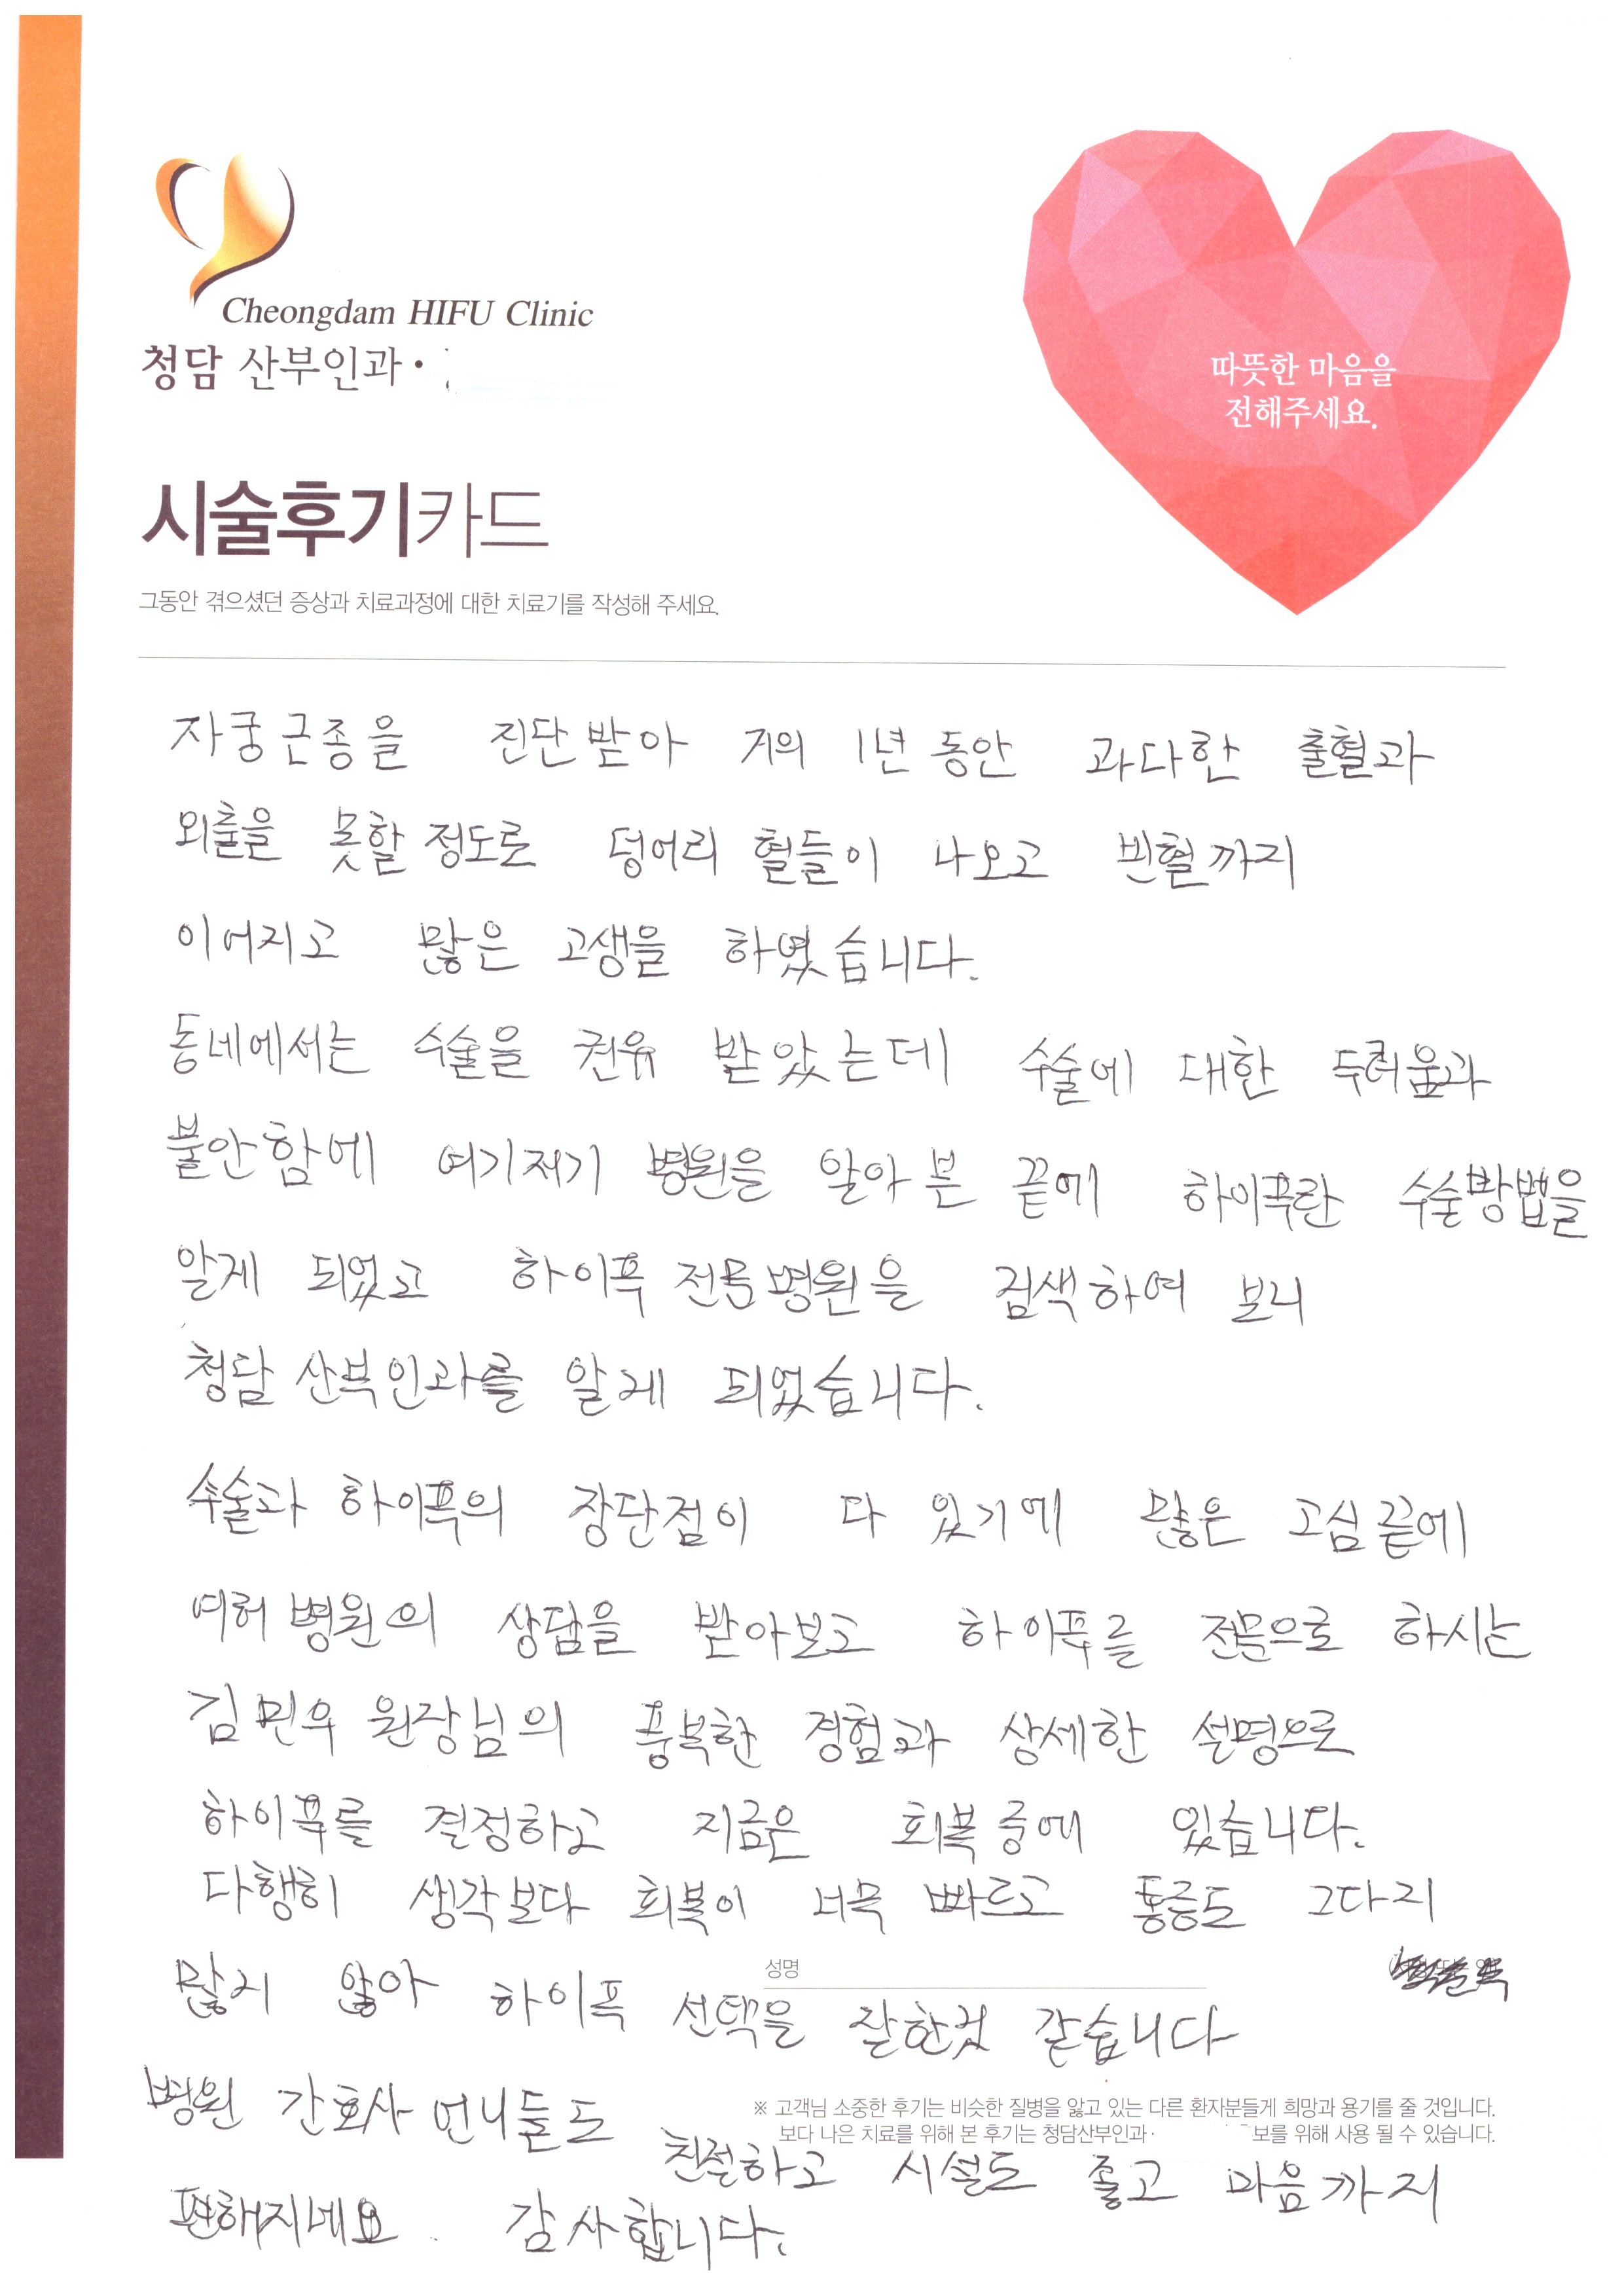 Cheongdam HIFU Clinic
청담 산부인과·
따뜻한 마음을
전해주세요.
시술후기카드
그동안 겪으셨던 증상과 치료과정에 대한 치료기를 작성해 주세요.
자궁근종을 진단받아 거의 1년 동안 과다한 출혈과
외출을 못할 정도로 덩어리 혈들이 나오고 빈혈까지
이어지고 많은 고생을 하였습니다.
동네에서는 수술을 권유 받았는데 수술에 대한 두려움과
불안함에 여기저기 병원을 알아본 끝에 하이푸란 수술방법을
알게 되었고 하이푸 전문병원을 검색하여 보니
청담 산부인과를 알게 되었습니다.
수술과 하이푸의 장단점이 다 있기에 많은 고심끝에
여러 병원의 상담을 받아보고 하이푸를 전문으로 하시는
김민우 원장님의 풍복한 경험과 상세한 설명으로
하이푸를 결정하고 지금은 회복중에 있습니다.
다행히 생각보다 회복이 너무 빠르고 통증도 그다지
많지 않아 하이푸 선택을 잘한것 같습니다
성명
병원 간호사 언니들도 친절하고 시설도 좋고 마음까지
편해지네요. 감사합니다.
※ 고객님 소중한 후기는 비슷한 질병을 앓고 있는 다른 환자분들게 희망과 용기를 줄 것입니다.
보다 나은 치료를 위해 본 후기는 청담산부인과· 보를 위해 사용 될 수 있습니다.